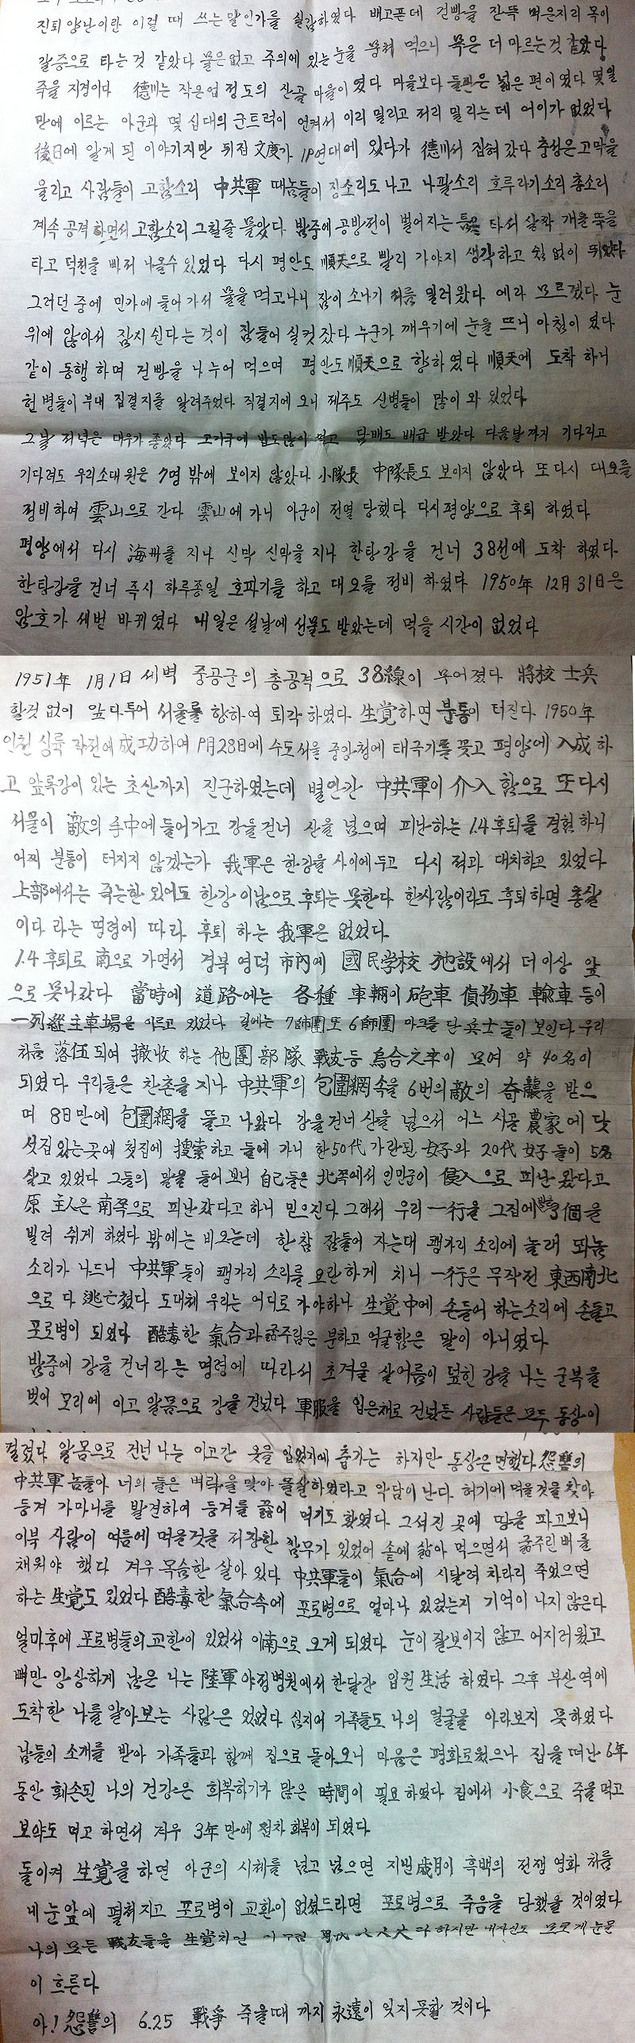 진퇴양난이란 이럴 때 쓰는 말인가를 실감하였다 배고픈데 건빵을 잔뜩 먹은지라 목이
갈증으로 타는 것 같았다 물은 없고 주위에 있는 눈을 뭉쳐 먹으니 목은 더 마르는 것 같았다
죽을 지경이다 德川는 작은 읍 정도의 산골 마을이였다 마을보다 들판은 넓은 편이였다 몇일
만에 이르는 아군과 몇 십대의 군트럭이 엉켜서 이리 밀리고 저리 밀리는데 어이가 없었다
後日에 알게 된 이야기지만 뒤집 文庚가 19연대에 있다가 德川서 잡혀 갔다 총성은 고막을
울리고 사람들이 고함소리 中共軍 떼놈들이 징소리도 나고 나팔소리 호루라기소리 총소리
계속 공격하면서 고함소리 그칠줄 몰랐다 밤중에 공방전이 벌어지는 틈을 타서 살짝 개울 뚝을
타고 덕천을 빠져 나올수 있었다 다시 평안도 順天으로 빨리 가야지 생각하고 쉼 없이 뛰었다
그러던 중에 민가에 들어가서 물을 먹고나니 잠이 소나기처럼 밀려왔다 에라 모르겠다 눈
위에 앉아서 잠시 쉰다는 것이 잠들어 실컷 잤다 누군가 깨우기에 눈을 뜨니 아침이였다
같이 동행 하며 건빵을 나누어 먹으며 평안도 順天으로 향하였다 順天에 도착 하니
헌병들이 부대 집결지를 알려주었다 직결지에 오니 제주도 신병들이 많이 와 있었다
그날 저녁은 대우가 좋았다 고기국에 밥도 많이 먹고 담배도 배급 받았다 다음날까지 기다리고
기다려도 우리소대원은 7명 밖에 보이지 않았다 小隊長 中隊長도 보이지 않았다 또 다시 대오를
정비하여 雲山으로 간다 雲山에 가니 아군이 전멸 당했다 다시 평양으로 후퇴 하였다
평양에서 다시 海州를 지나 신막 신막을 지나 한탄강을 건너 38선에 도착 하였다
한탄강을 건너 즉시 하루종일 호파기를 하고 대오를 정비 하였다 1950年 12月 31日은
암호가 세번 바뀌였다 내일은 설날에 선물도 받았는데 먹을 시간이 없었다
1951年 1月1日 새벽 중공군의 총공격으로 38線이 무어졌다 將校 士兵
할것 없이 앞다투어 서울를 향하여 퇴각 하였다 生覚하면 분통이 터진다 1950年
인천 상륙 작전에 成功하여 9月28日에 수도서울 중앙청에 태극기를 꽂고 평양에 入成하
고 앞록강이 있는 초산까지 진군하였는데 별안간 中共軍이 介入 함으로 또 다시
서울이 敵의 手中에 들어가고 강을 건너 산을 넘으며 피난하는 1.4 후퇴를 경험하니
어찌 분통이 터지지 않겠는가 我軍은 한강을 사이에 두고 다시 적과 대치하고 있었다
上部에서는 죽는한 있어도 한강 이남으로 후퇴는 못한다 한사람이라도 후퇴하면 총살
이다 라는 명령에 따라 후퇴 하는 我軍은 없었다
1.4 후퇴로 南으로 가면서 경북 영덕 市內에 國民学校 施設에서 더 이상 앞
으로 못나갔다 當時에 道路에는 各種 車輛이 砲車 貨物車 輸車 등이
一列縱主車場을 이르고 있었다 길에는 7師團 또 6師團 마크를 단 兵士들이 보인다 우리
처름 落伍되여 撤收 하는 他團 部隊 戰友등 烏合之卒이 모여 약 40名이
되였다 우리들은 찬촌을 지나 中共軍의 包圍網속을 6번의 敵의 奇襲을 받으
며 8日만에 包圍網을 뚫고 나왔다 강을 건너 산을 넘으서 어느 시골 農家에 닷
섯집 있는곳에 첫집에 搜索하고 들에 가니 한50代 가량된 女子와 20代 女子 들이 5名
살고 있었다 그들의 말을 들어보니 自己들은 北쪽에서 인민군이 侵入으로 피난 왔다고
原 主人은 南쪽으로 피난 갔다고 하니 믿으진다 그래서 우리 一行을 그집에 방 3個을
빌려 쉬게 하였다 밖에는 비오는데 한참 잠들어 자는대 꽹가리 소리에 놀래 뙤놈
소리가 나드니 中共軍들이 꽹가리 소리를 요란하게 치니 一行은 무작전 東西南北
으로 다 逃亡쳤다 도대체 우리는 어디로 가야하나 生覚中에 손들어 하는소리에 손들고
포로병이 되였다 酷毒한 氣合과 굶주림은 분하고 억굴함은 말이 아니였다
밤중에 강을 건너라는 명령에 따라서 초겨울 살어름이 덮힌 강을 나는 군복을
벗어 모리에 이고 알몸으로 강을 건넜다 軍服을 입은채로 건넜든 사람들은 모두 동상이
걸렸다 알몸으로 건넌 나는 이고간 옷을 입었지에 춥기는 하지만 동상은 면했다 怨讐의
中共軍 놈들아 너의 들은 벼락을 맞아 몰살하였라고 악담이 난다 허기에 먹을것을 찾아
등겨 가마니를 발견하여 등겨를 끓어 먹기도 했였다 그 서진 곳에 땅을 파고보니
이북 사람이 여름에 먹을것을 저장한 감무가 있었어 솥에 삶아 먹으면서 굶주린 배를
채워야 했다 겨우 목숨한 살아 있다 中共軍들이 氣合에 시달려 차라리 죽었으면
하는 生覚도 있었다 酷毒한 氣合속에 포로병으로 얼마나 있었는지 기억이 나지 않은다
얼마후에 포로병들의 교환이 있었서 이南으로 오게 되였다 눈이 잘보이지 않고 어지러웠고
뼈만 앙상하게 남은 나는 陸軍 야전병원에서 한달간 입원 生活 하였다 그후 부산역에
도착한 나를 알아보는 사람은 있었다 심지어 가족들도 나의 얼굴을 아라보지 못하였다
남들의 소개를 받아 가족들과 함께 집으로 돌아오니 마음은 평화로웠으나 집을 떠난 6年
동안 훼손된 나의 건강은 회복하기가 많은 時間이 필요하였다 집에서 小食으로 죽을 먹고
보약도 먹고 하면서 겨우 3年 만에 점차 회복이 되였다
돌이켜 生覚을 하면 아군의 시체를 넘고 넘으면 지난 歲月이 흑백의 전쟁 영화 처름
내 눈앞에 펼쳐지고 포로병이 교환이 없셨드라면 포로병으로 죽음을 당했을 것이였다
나의 모든 戰友들을 生覚하면 하지만 내자신도 모르게 눈물
이 흐른다
아! 怨讐의 6.25 戰爭 죽을때 까지 永遠이 잊지 못할 것이다